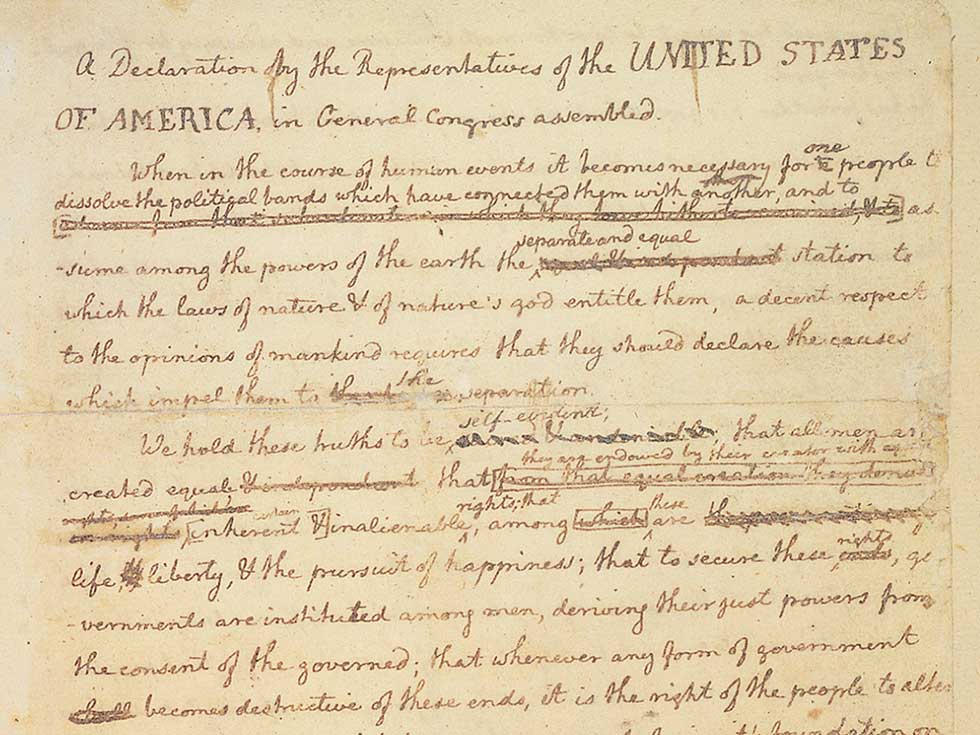 A Declaration by the Representatives of the UNITED STATES
OF AMERICA, in General Congress assembled.
When in the course of human events it becomes necessary for one people to
dissolve the political bands which have connected them with another, and to
as
-sume among the powers of the earth the separate and equal station to
which the laws of nature & of nature's god entitle them, a decent respect
to the opinions of mankind requires that they should declare the causes
which impel them to the separation.
self-evident;
We hold these truths to be, that all men are
they are endowed by their creator with
created equal & independent that from that equal creation they
rights; that these
certain [inherent &] inalienable, among which are
rights
life, liberty, & the pursuit of happiness; that to secure these ends, go-
-vernments are instituted among men, deriving their just powers from
the consent of the governed; that whenever any form of government
shall becomes destructive of these ends, it is the right of the people to alter
foundation on